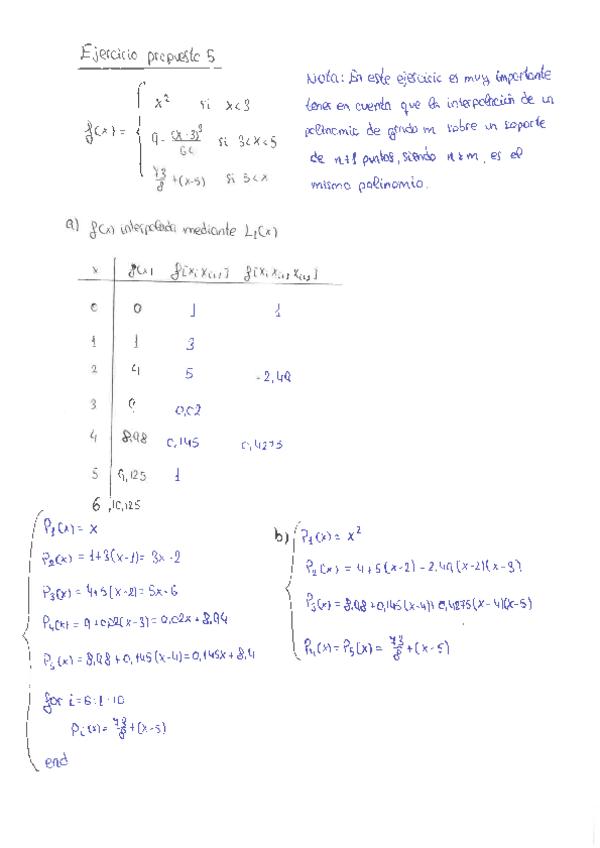 Ejercicio propuesto 5
x² si x<3
f(x) = 9 - (x-3)³/64 si 3<x<5
73/8 + (x-5) si 5<x
Nota: En este ejercicio es muy importante
tener en cuenta que la interpolación de un
polinomio de grado m sobre un soporte
de n+1 puntos, siendo n≥m, es el
mismo polinomio.
a) f(x) interpolada mediante L₁(x)
x f(x) f[xᵢ xᵢ₊₁] f[xᵢ xᵢ₊₁ xᵢ₊₂]
0 0 1 1
1 1 3
2 4 5 -2,49
3 9 0,02
4 8,98 0,145 0,4275
5 9,125 1
6 10,125
P₁(x) = x
P₂(x) = 1+3(x-1) = 3x-2
P₃(x) = 4+5(x-2) = 5x-6
P₄(x) = 9+0,02(x-3) = 0,02x+8,94
P₅(x) = 8,98+0,145(x-4) = 0,145x+8,4
for i=6:1:10
Pᵢ(x) = 73/8 + (x-5)
end
b) P₁(x) = x²
P₂(x) = 4+5(x-2)-2.49(x-2)(x-3)
P₃(x) = 8,98+0,145(x-4)+0,4275(x-4)(x-5)
P₄(x) = P₅(x) = 73/8 + (x-5)